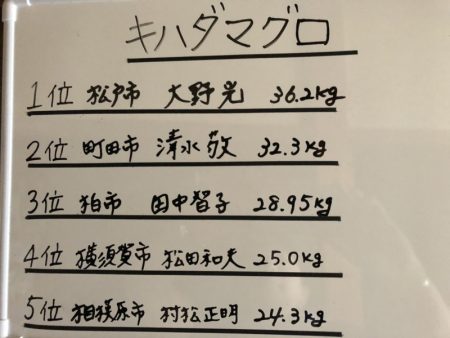 キハダマグロ
1位 松戸市 大野光 36.2kg
2位 町田市 清水敬 32.3kg
3位 柏市 田中智子 28.95kg
4位 横須賀市 松田和夫 25.0kg
5位 相模原市 村松正明 24.3kg